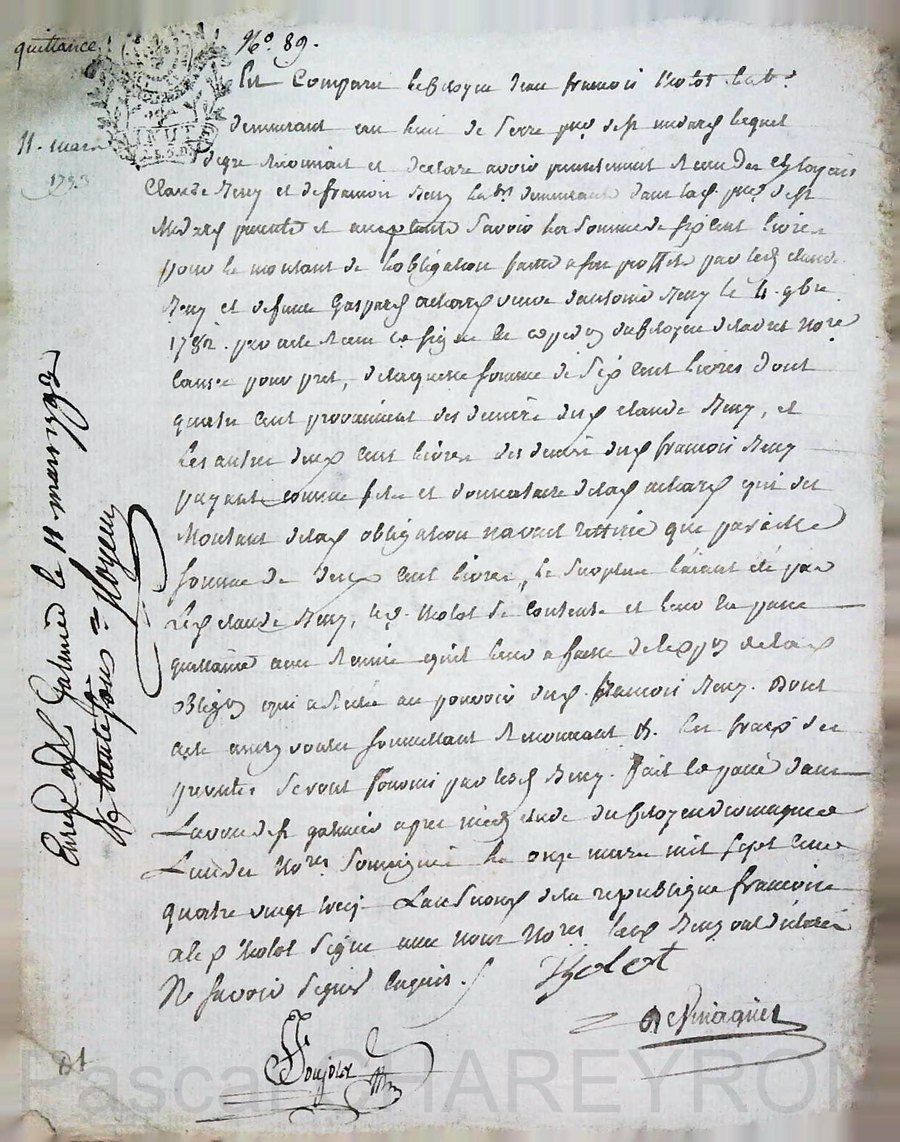 quittance
N.o 89.
11. mars
1793
Est Comparu le Citoyen Jean francois tholot lab.r
demeurant au lieu de Serre p.sse de st medard lequel
de gré reconnait et declare avoir presentement recu des Citoyens
Claude Reny et de francois Reny lab.rs demeurants dans lad. p.sse de st
Medard presents et acceptants Savoir la Somme de six cent livres
pour le montant de l'obligation passée a son proffit par led. claude
Reny et defunte Gaspard veuve d'antoine Reny le 4. 9bre
1782. par acte recu du Citoyen not.re
Causée pour pret, de laquelle somme de Six Cent livres dont
quatre Cent provienment des deniers dud. claude Reny, et
les autres deux Cent livres des deniers dud. francois Reny
payant comme fils et donnataire de lad. qui du
Montant de lad. obligation n'avait rettiré que pareille
somme de deux Cent livres, le Surplus l'aiant été par
led. claude Reny, led. tholot Se Contente et leur en passe
quittance avec Remise qu'il leur a faitte de l'exp.on de lad.
obligon qui a resté au pouvoir dud. francois Reny. Dont
acte ainsy voulu soumettant Renoncant &. les fraix des
presentes Seront fournis par lesd. Reny. fait et passé dans
La ville de st galmier apres midy etude du Citoyen
L'un des No.res Soussignés le onze mars mil sept Cent
quatre vingt treize L'an Second de la republique francoise
a led. tholot Signé avec nous No.res lesd. Reny ont déclaré
Ne Savoir Signer Enquis.
tholot
Enregé a St Galmier le 11 mars 1793
Rx trente sous
81
Pascal CHAREYRON